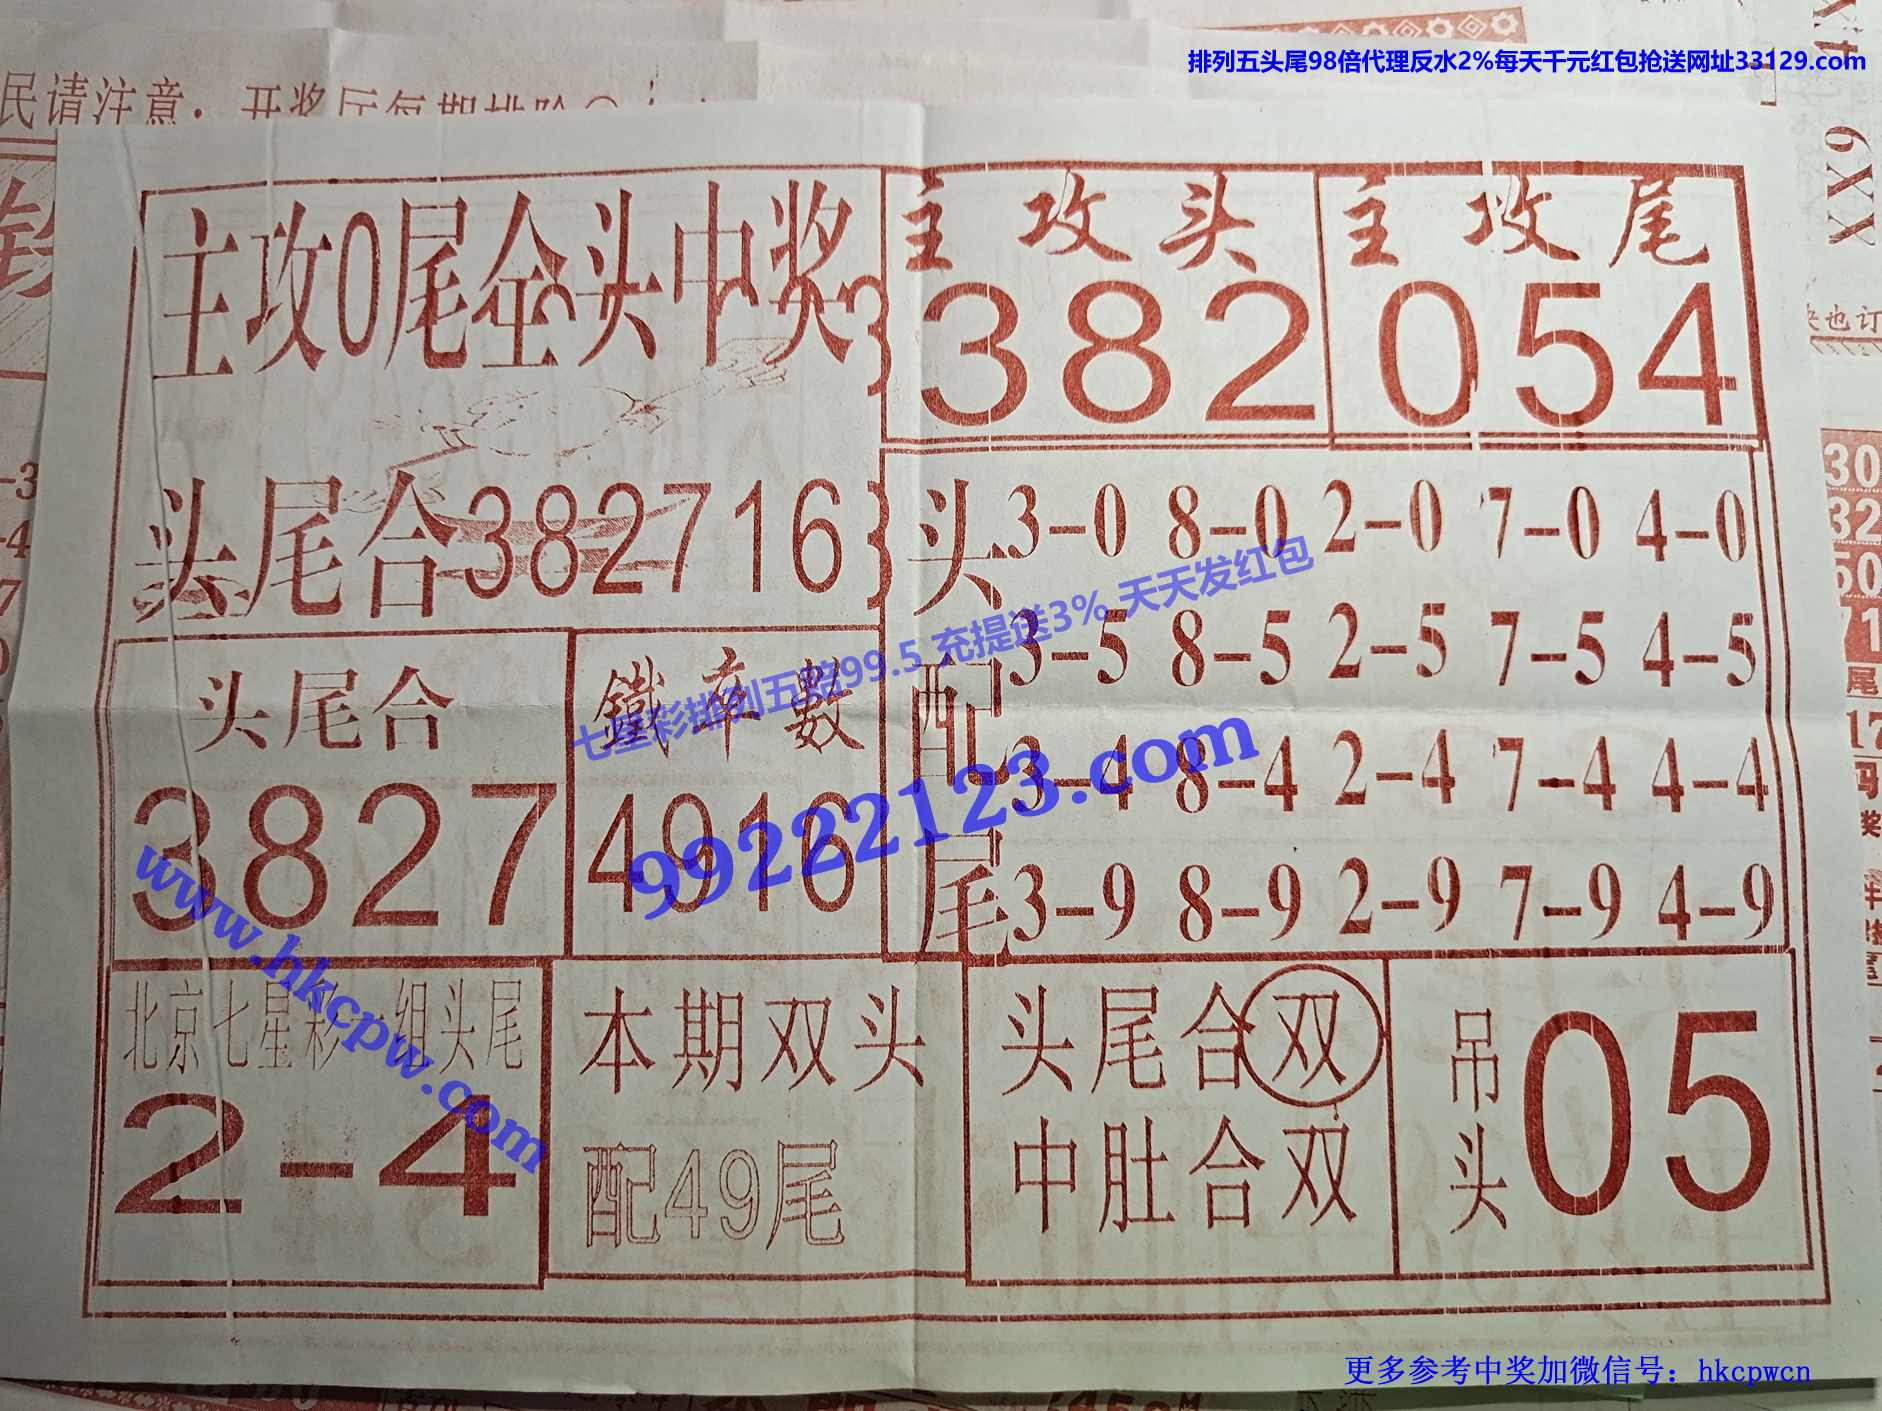 排列五头尾98倍代理反水2%每天千元红包抢送网址33129.com
民请注意:
6XX
主攻0尾全头中奖
主攻头
382
主攻尾
054
头尾合382716
头配尾
3-0 8-0 2-0 7-0 4-0
3-5 8-5 2-5 7-5 4-5
3-4 8-4 2-4 7-4 4-4
3-9 8-9 2-9 7-9 4-9
头尾合
3827
鐵率數
4916
七星彩排列五赔99.5 充提送3% 天天发红包
99222123.com
www.hkcpw.com
北京七星彩一组头尾
2-4
本期双头
配49尾
头尾合双
中肚合双
吊头
05
30
32
50
71
尾
17
码
奖
更多参考中奖加微信号：hkcpwcn